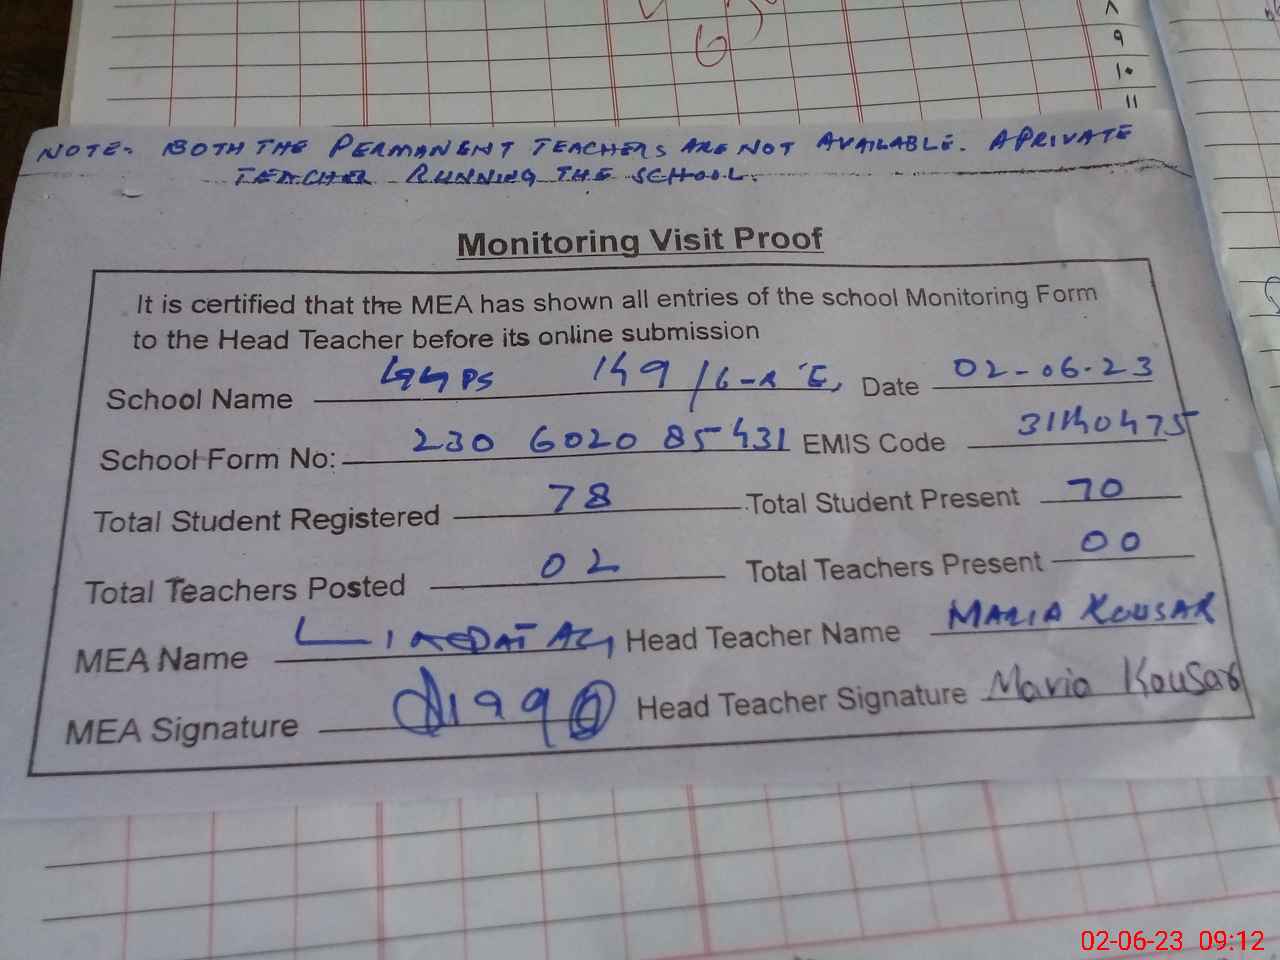 6
8
9
10
11
NOTE- BOTH THE PERMANENT TEACHERS ARE NOT AVAILABLE. A PRIVATE
TEACHER RUNNING THE SCHOOL.
Monitoring Visit Proof
It is certified that the MEA has shown all entries of the school Monitoring Form
to the Head Teacher before its online submission
School Name GGPS 149/6-R Date 02-06-23
School Form No: 230 6020 85431 EMIS Code 31140475
Total Student Registered 78 Total Student Present 70
Total Teachers Posted 02 Total Teachers Present 00
MEA Name LIAQAT ALI Head Teacher Name MARIA KOUSAR
MEA Signature Head Teacher Signature Maria Kousar
02-06-23 09:12